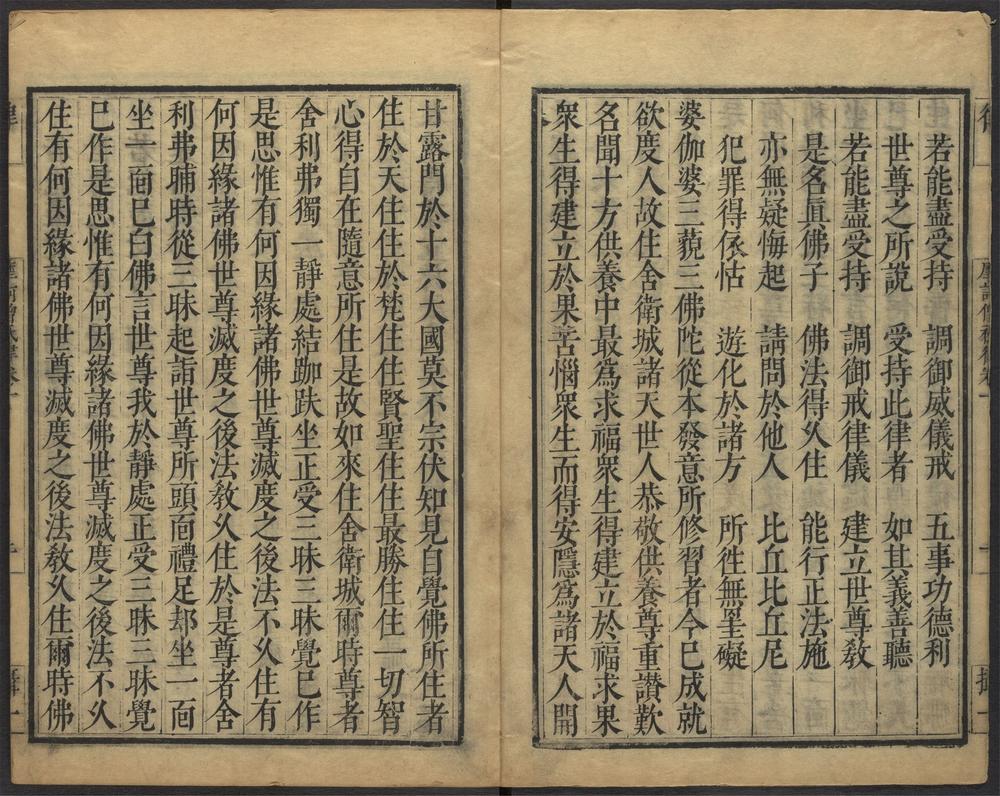 若能盡受持　調御威儀戒　五事功德利
世尊之所說　受持此律者　如其義善聽
若能盡受持　調御戒律儀　建立世尊教
是名眞佛子　佛法得久住　能行正法施
亦無疑悔起　請問於他人　比丘比丘尼
犯罪得依怙　遊化於諸方　所徃無罣礙
婆伽婆三藐三佛陀從本發意所修習者今已成就
欲度人故住舍衛城諸天世人恭敬供養尊重讃歎
名聞十方供養中最爲求福衆生得建立於福求果
衆生得建立於果苦惱衆生而得安隱爲諸天人開
甘露門於十六大國莫不宗伏知見自覺佛所住者
住於天住住於梵住住賢聖住住最勝住住一切智
心得自在隨意所住是故如來住舍衛城爾時尊者
舍利弗獨一靜處結跏趺坐正受三昧三昧覺已作
是思惟有何因緣諸佛世尊滅度之後法不久住有
何因緣諸佛世尊滅度之後法教久住於是尊者舍
利弗晡時從三昧起詣世尊所頭面禮足却坐一面
坐一面已白佛言世尊我於靜處正受三昧三昧覺
已作是思惟有何因緣諸佛世尊滅度之後法不久
住有何因緣諸佛世尊滅度之後法教久住爾時佛